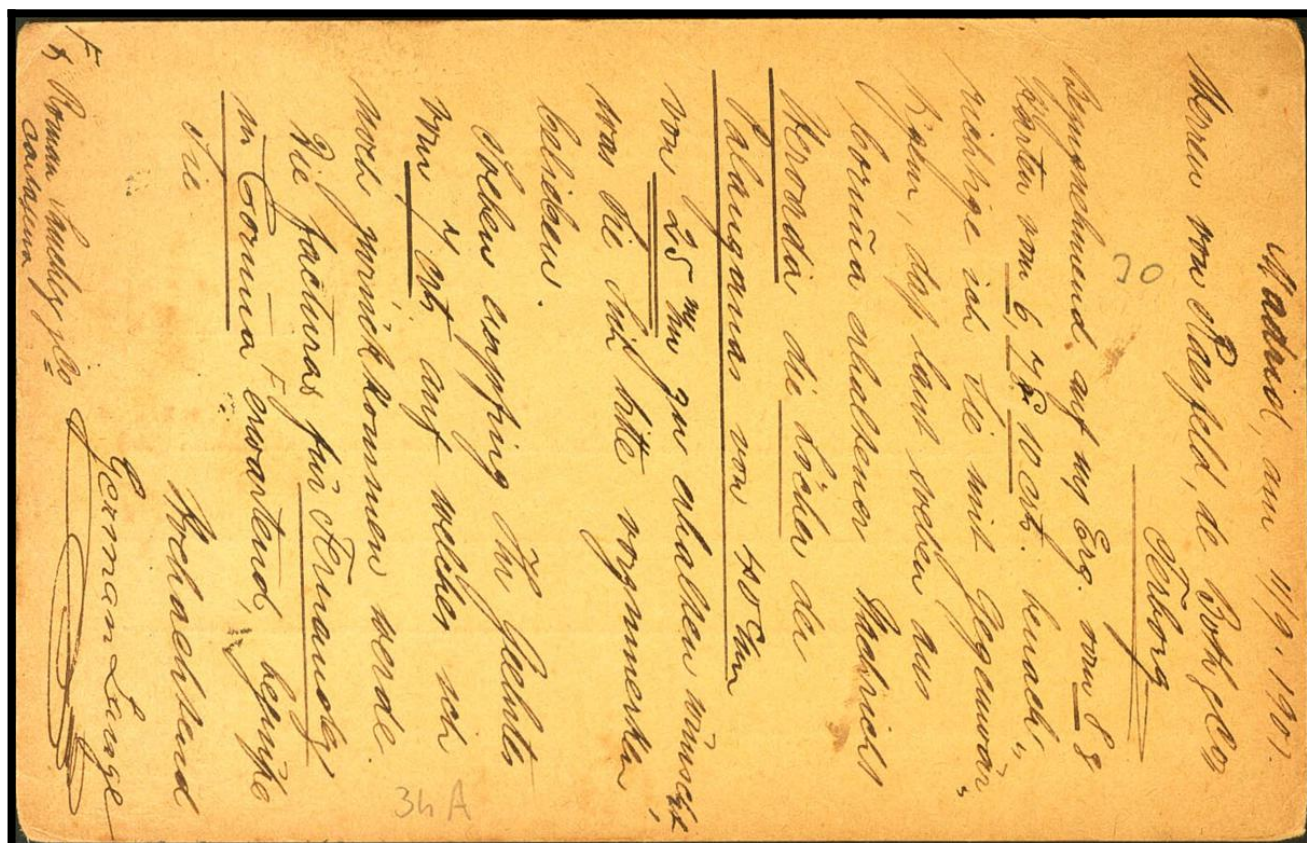 Madrid, am 11/9. 1901.
Herren von Raesfeld, de Both &Co
Terborg
20
Bezugnehmend auf my Erg. vom 8 g
Karten vom 6, 7 & 10 ct. benach-
richtige ich Sie mit Gegenwär-
tigem, daß laut soeben aus
Coruña erhaltener Nachricht
die Löcher der
Palanganas von 40 c/m
von 25 m/m zu erhalten wünscht,
was Sie sich bitte vorzumerken
belieben.
Soeben empfing Ihr Geehrtes
vom 7 ct auf welches ich
noch zurückkommen werde.
Die facturas für Fernandez
in Coruña erwartend, begrüße
Sie
Hochachtend
German Lange
F
Roman
34 A